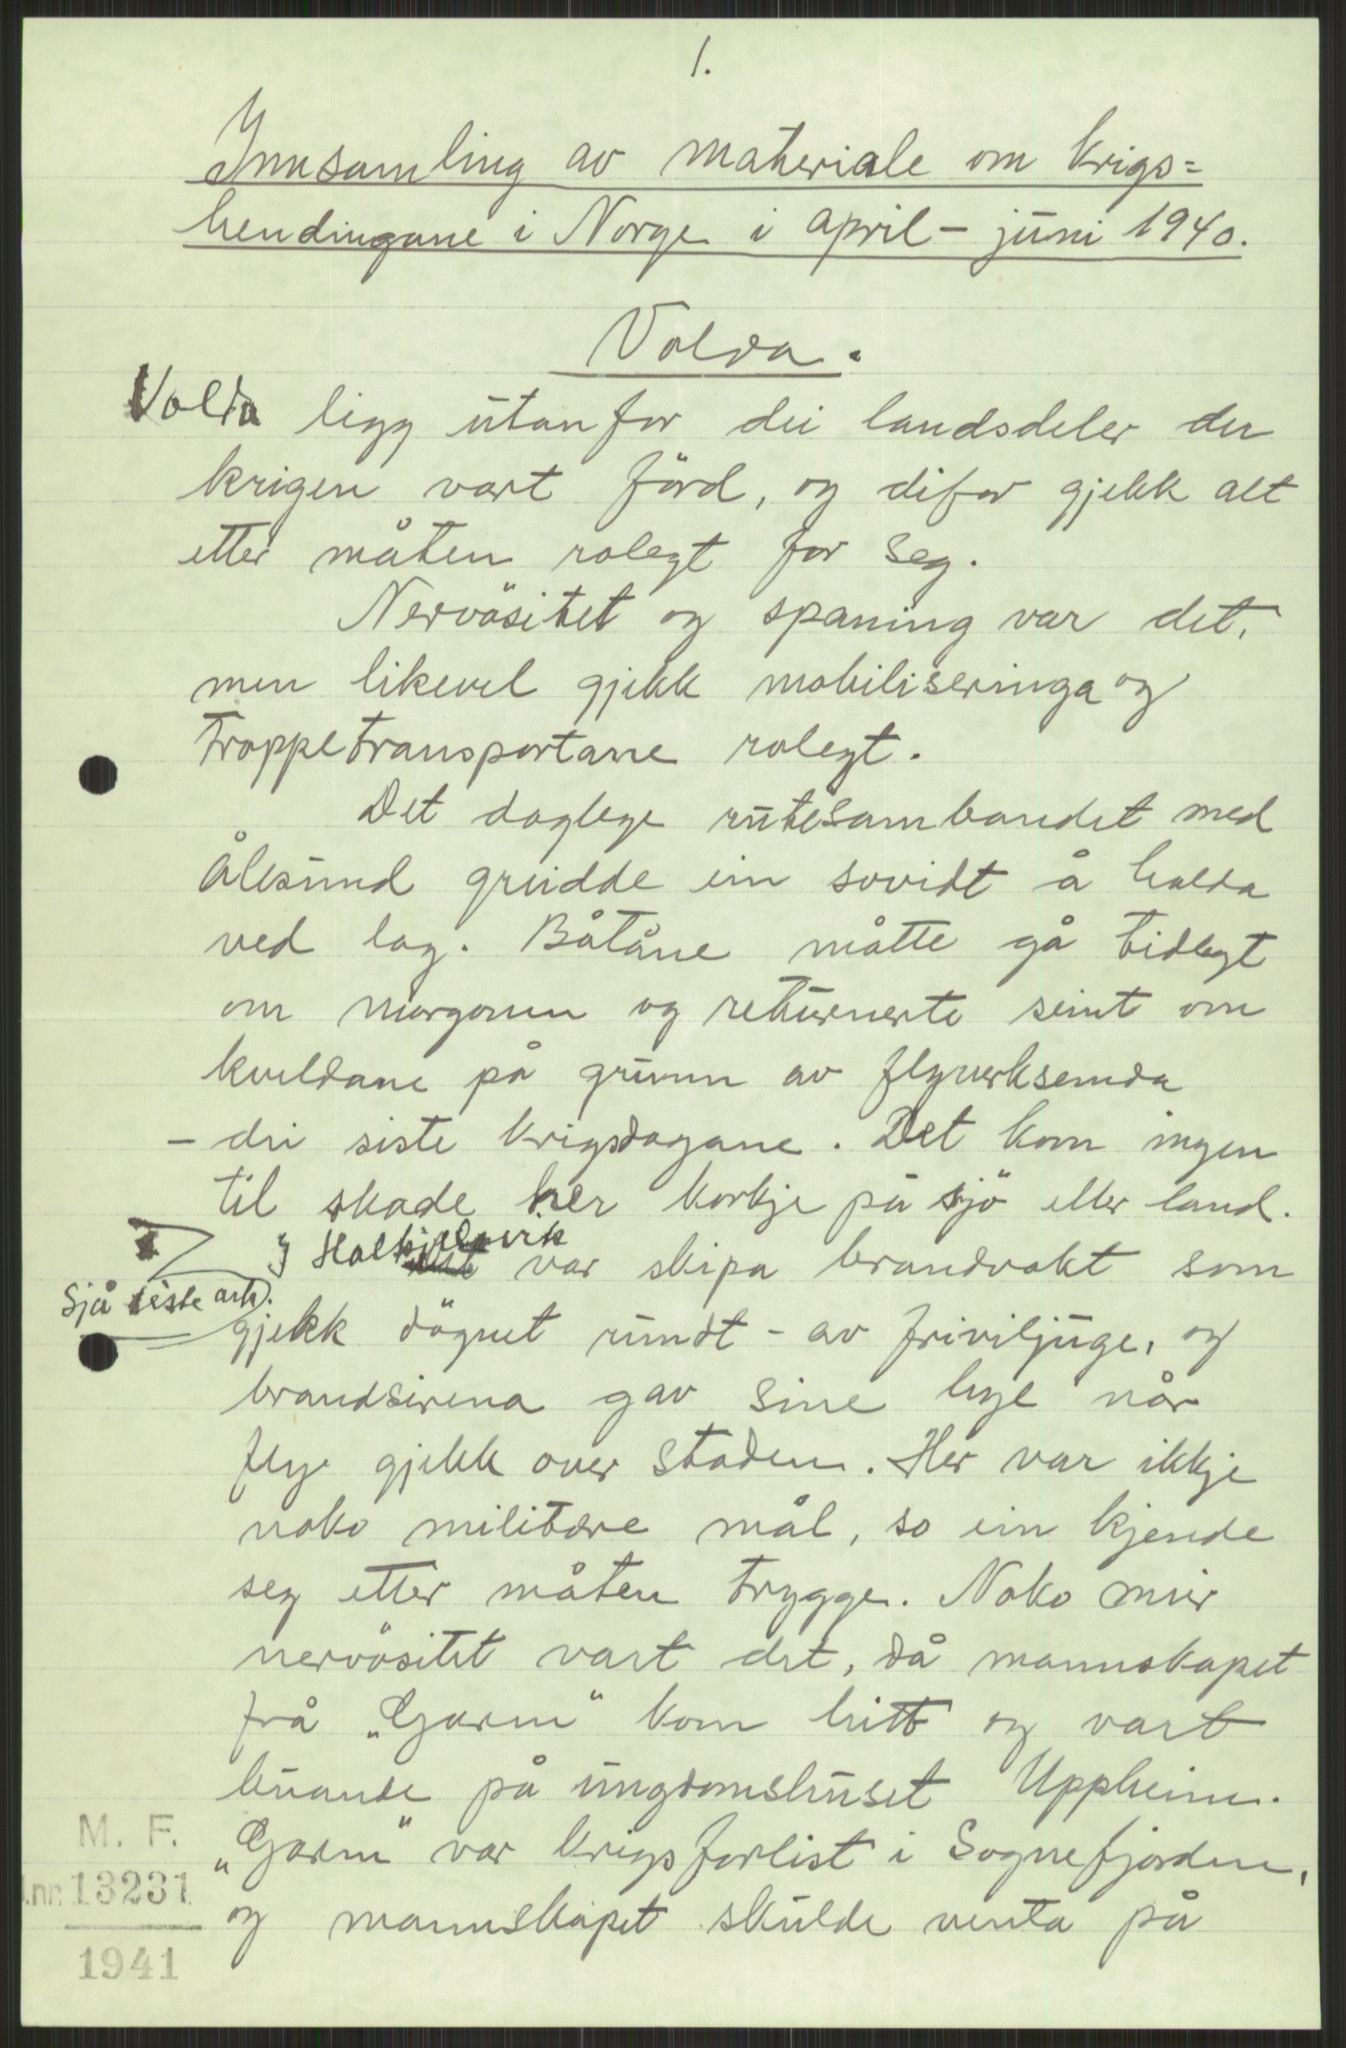 1.
Innsamling av materiale om krigs=
hendingane i Norge i april - juni 1940.
Volda.
Volda ligg utanfor dei landsdeler der
krigen vart förd, og difor gjekk alt
etter måten rolegt for seg.
Nervösitet og spaning var det,
men likevel gjekk mobiliseringa og
troppetransportane rolegt.
Det daglege rutesambandet med
Ålesund greidde ein sovidt å halda
ved lag. Båtane måtte gå tidlegt
om morgonen og returnerte seint om
kveldane på grunn av flyverksemda
- dei siste krigsdagane. Det kom ingen
til skade her korkje på sjö eller land.
I Halkjelsvik var skipa brandvakt som
Sjå siste ark.
gjekk dögnet rundt - av friviljuge, og
brandsirena gav sine hyl når
fly gjekk over staden. Her var ikkje
noko militære mål, so ein kjende
seg etter måten trygge. Noko meir
nervösitet vart det, då mannskapet
frå „Garm" kom hitt og vart
buande på ungdomshuset Uppheim.
„Garm" var krigsforlist i Sognefjorden,
og mannskapet skulde venta på
M. F.
J.nr. 13231
1941